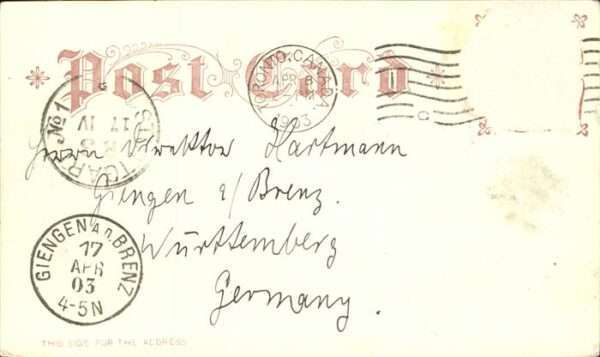 Post Card
TORONTO, CANADA
APR 8
1903
C
STUTTGART
No 1
17 IV
Herrn Direktor Hartmann
Giengen a/Brenz.
Württemberg
Germany.
GIENGEN A.D. BRENZ
17
APR
03
4-5N
THIS SIDE FOR THE ADDRESS